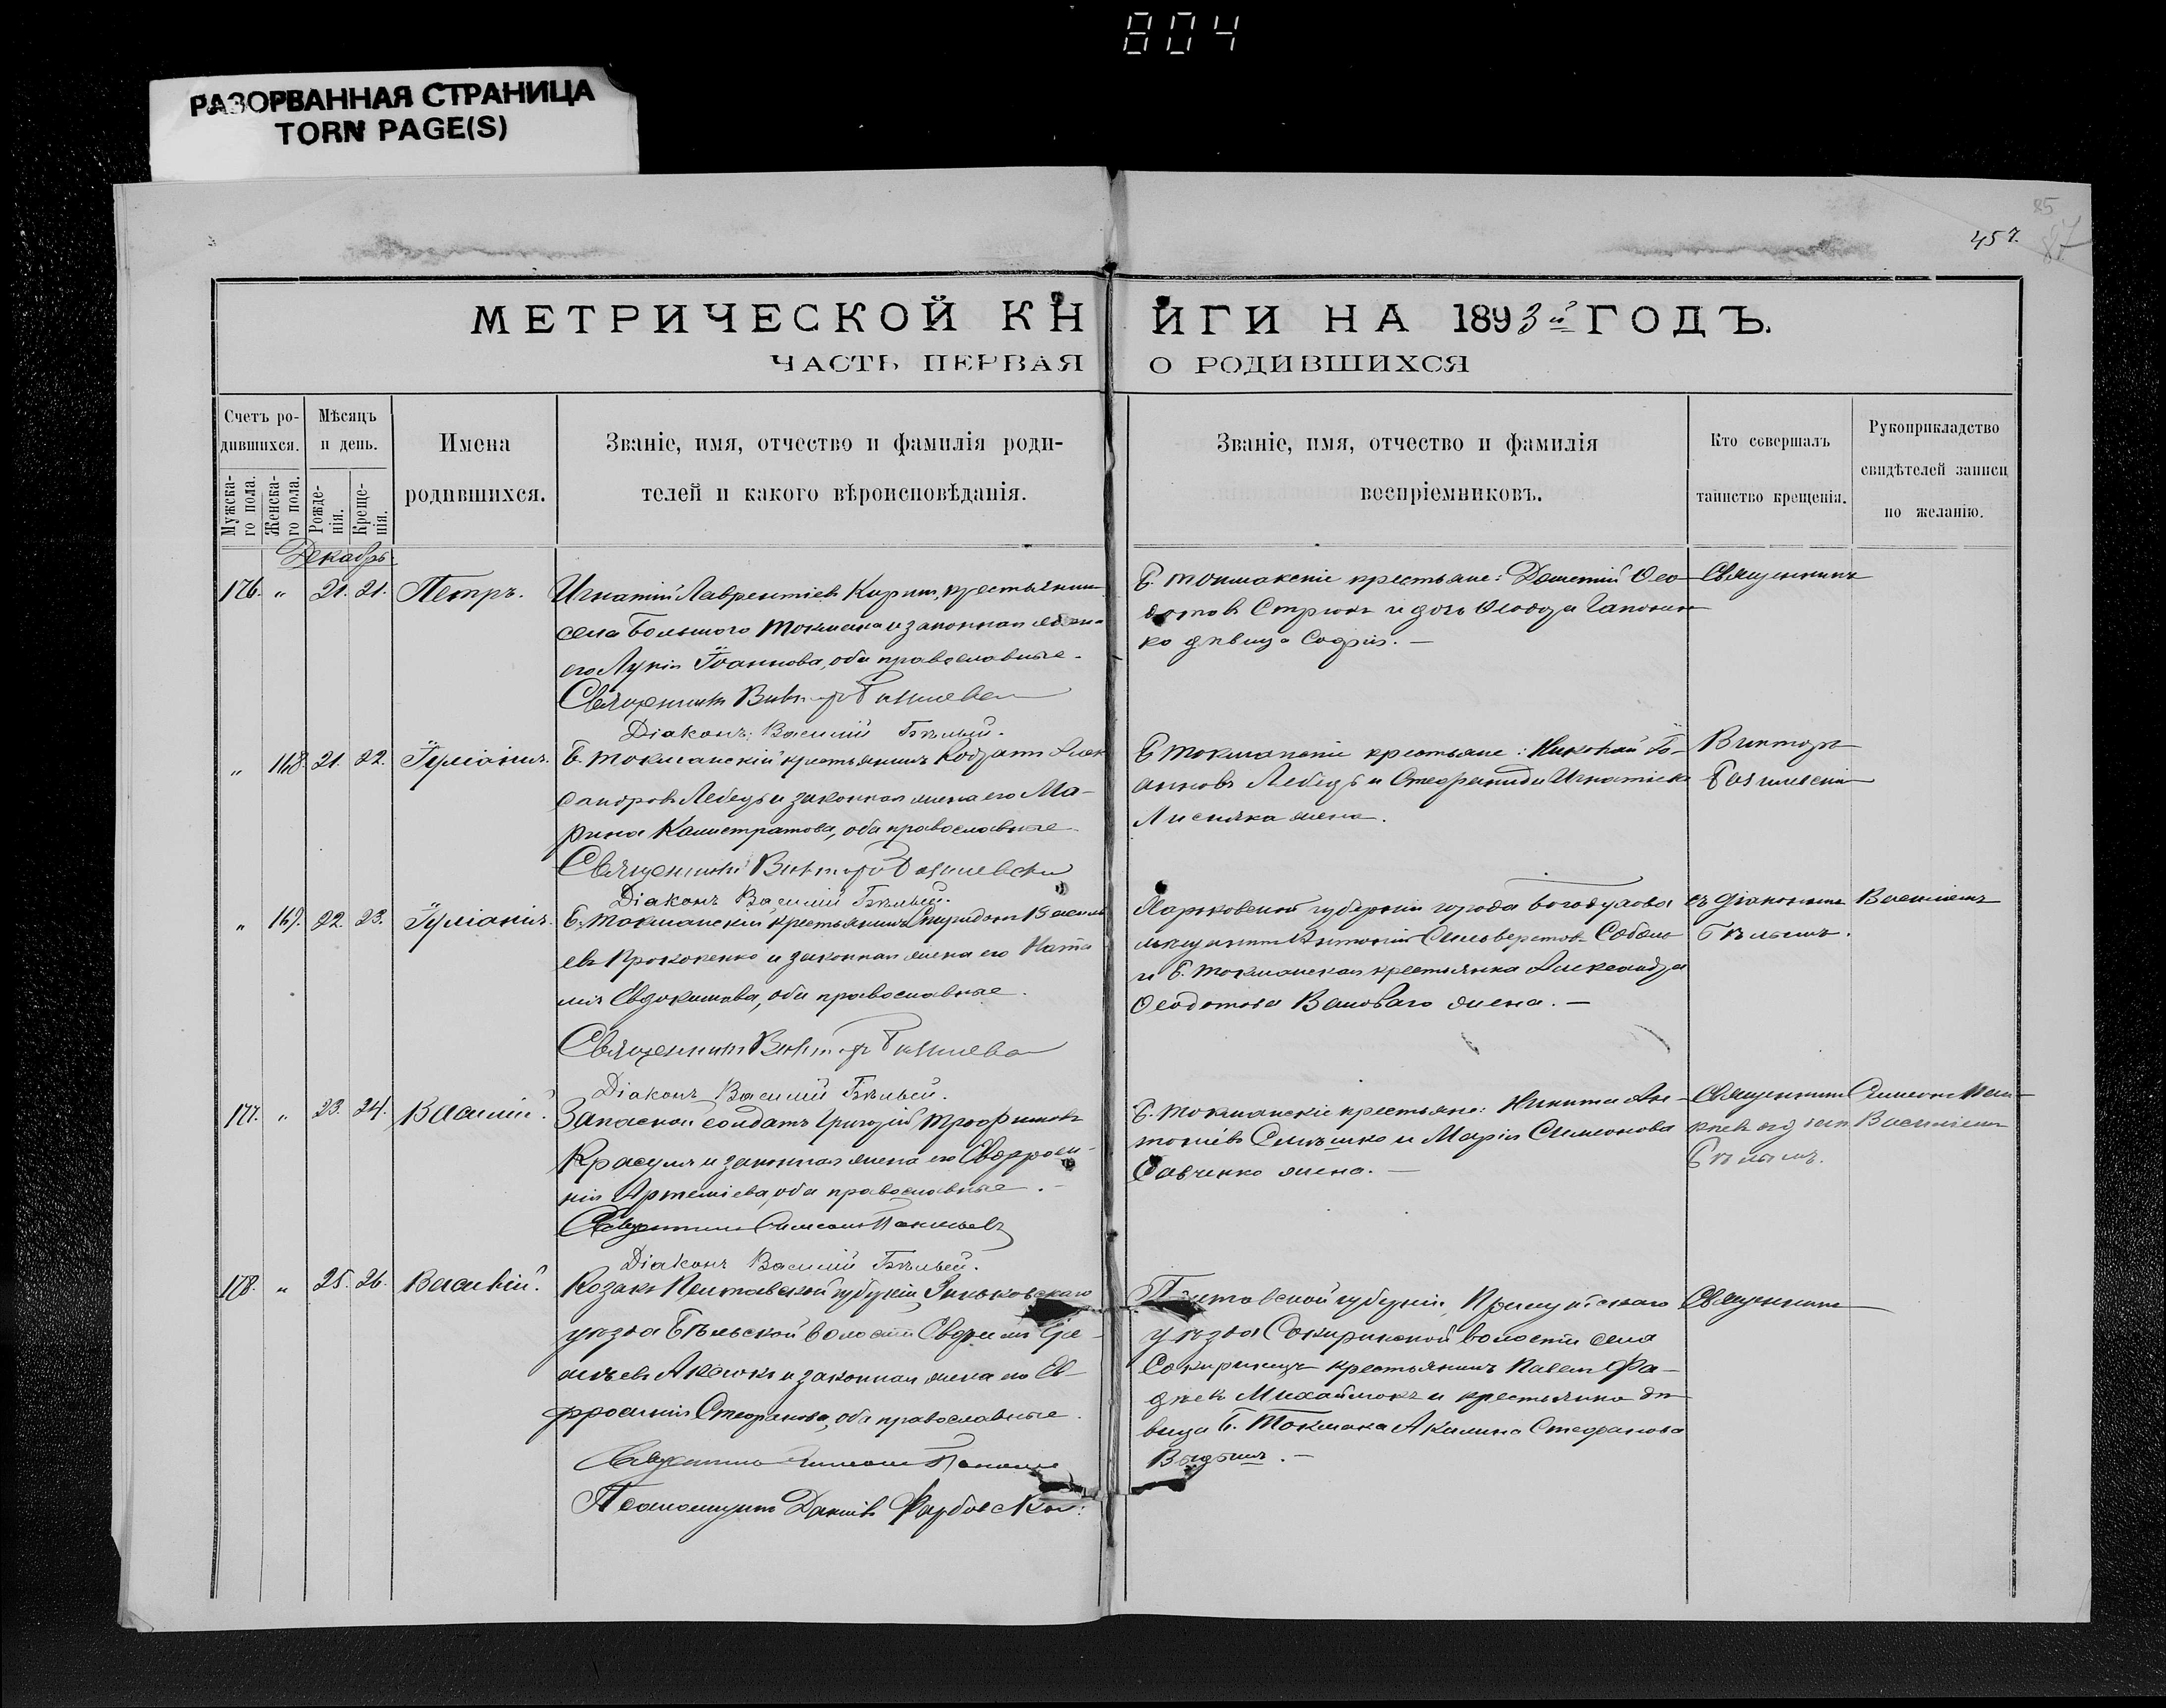 804
РАЗОРВАННАЯ СТРАНИЦА
TORN PAGE(S)
85
457. 87
МЕТРИЧЕСКОЙ КНИГИ НА 1893й ГОДЪ.
ЧАСТЬ ПЕРВАЯ О РОДИВШИХСЯ
Счетъ ро-
дившихся.
Мужска-
го пола.
Женска-
го пола.
Мѣсяцъ
и день.
Рожде-
нія.
Креще-
нія.
Имена
родившихся.
Званіе, имя, отчество и фамилія роди-
телей и какого вѣроисповѣданія.
Званіе, имя, отчество и фамилія
воспріемниковъ.
Кто совершалъ
таинство крещенія.
Рукоприкладство
свидѣтелей записи
по желанію.
Декабрь
176. " 21. 21. Петръ.
Игнатій Лаврентіевъ Кириш, крестьянинъ
села Большого Токмака и законная жена
его Лукія Іоаннова, оба православные.
Священникъ Викторъ
Діаконъ: Василій Бѣлый.
Б. Токмакскіе крестьяне: Дометій Ѳео-
дотовъ и дочь Ѳеодора Гапонен-
ко дѣвица Софія. —
Священникъ
" 168. 21. 22. Іуліанія.
Б. Токмакскій крестьянинъ Кодратъ Алек
сандровъ Лебедь и законная жена его Ма-
рина Калистратова, оба православные
Священникъ Викторъ
Діаконъ Василій Бѣлый.
Б Токмакскіе крестьяне: Николай Іо-
анновъ Лебедь и Стефанида Игнатіева
Лисняка жена.
Викторъ
" 169. 22. 23. Іуліанія.
Б. Токмакскій крестьянинъ Спиридонъ Василь
евъ Прокопенко и законная жена его Ната
лія Евдокимова, оба православные.
Священникъ Викторъ
Діаконъ Василій Бѣлый.
Харьковской губерніи города Богодухова
мѣщанинъ Антоній Сильверстовъ Соболь
и Б. Токмакская крестьянка Александра
Ѳеодотова Валового жена. —
съ діакономъ Василіемъ
Бѣлымъ.
177. " 23. 24. Василій.
Запасной солдатъ Григорій Трофимовъ
Красуля и законная жена его Евфроси-
нія Артеміева, оба православные. —
Священникъ Симеонъ
Діаконъ Василій Бѣлый.
Б. Токмакскіе крестьяне: Никита Ан-
тоніевъ и Марія Симеонова
Савченко жена. —
Священникъ Симеонъ
Василіемъ
Бѣлымъ.
178. " 25. 26. Василій.
Козакъ Полтавской губерніи Зиньковскаго
уѣзда Бѣльской волости
и законная жена его Ев-
фросинія Стефанова, оба православные.
Священникъ Симеонъ
Псаломщикъ Даніилъ
Полтавской губерніи, Прилукскаго
уѣзда Сокиринской волости села
Сокиринецъ крестьянинъ Павелъ Фа-
дѣевъ Михайлюкъ и крестьянка дѣ-
вица Б. Токмака Акилина Стефанова
Священникъ